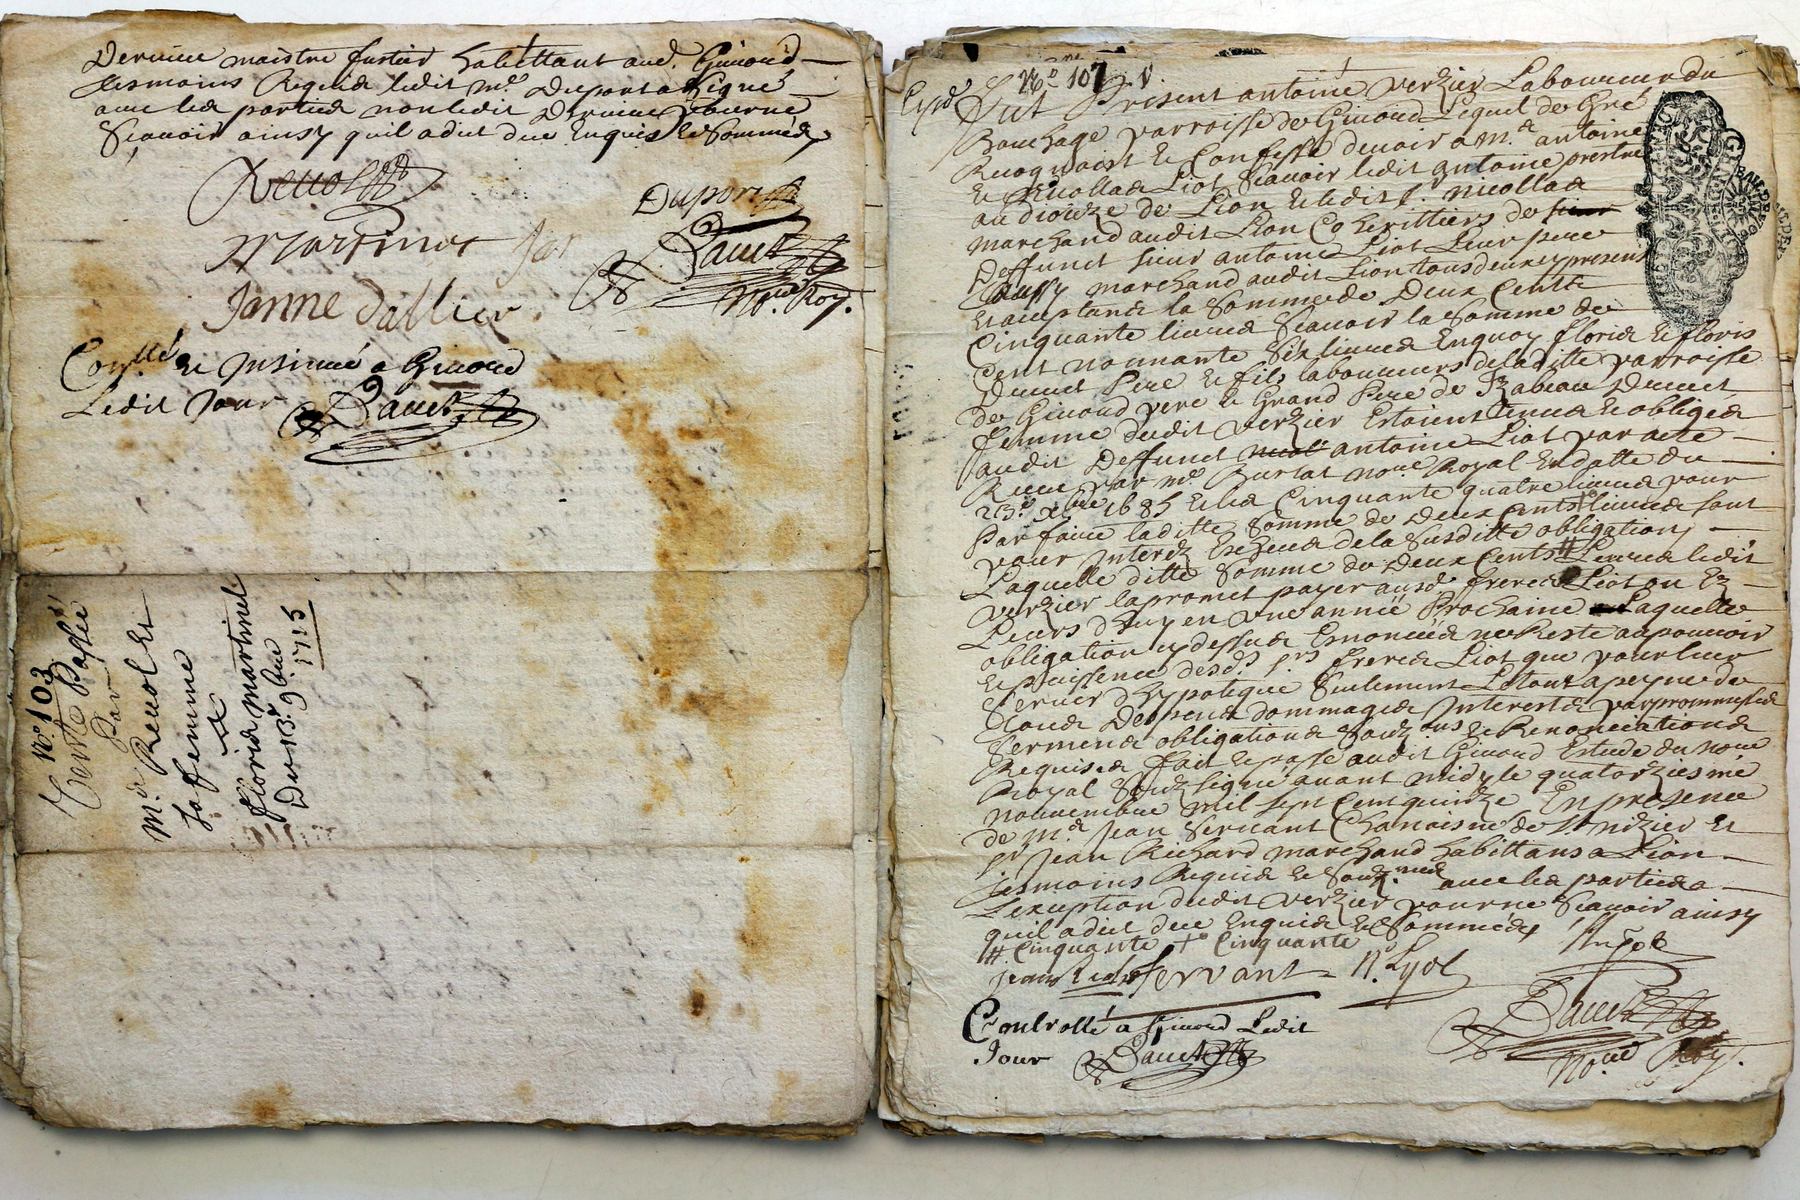 Dervieu maistre fustier habittant aud. Givord
tesmoins Requis ledit m.e Duport a signé
avec les parties non ledit Dervieu pour ne
Scavoir ainsy quil a dit de ce Enquis et Sommé
Revol
Duport
Martinet
Janne dallier
Not.re Roy.
Con.llé et Insinué a Givord
Ledit Jour
N.o 103
Vente Passée
Par
m.r Revol et
Sa femme
a
floris martinet
Du 13.e 9.bre
1715
Exp.é
N.o 107
Fut Present antoine verzier Laboureur du
Bouchage parroisse de Givord Lequel de Gré
Recognoist et Confesse devoir a M.r antoine
et Nicollas Liot Scavoir ledit antoine prestre
au diocèze de Lion et ledit S.r nicollas
marchand audit Lion Coheritiers de sieur
Deffunct sieur antoine Liot Leur pere
aussy marchand audit Lion tous deux cy presents
et acceptants la Somme de Deux Cents
Cinquante livres Scavoir la Somme de
Cent nonnante Six livres Enquoy floris et floris
Pere et fils laboureurs de laditte parroisse
de Givord pere et Grand Pere de Izabeau
femme dudit verzier Estoient tenus et obligés
audit Deffunct antoine Liot par acte
Receu par m.e Burlat no.re Royal En datte du
23.e x.bre 1685 et les Cinquante quatre livres pour
Parfaire laditte Somme de Deux Cents + livres sont
pour Interez Escheus de la Susditte obligation
Laquelle ditte Somme de Deux Cents # Livres ledit
verzier la promet payer ausd. freres Liot ou Ez
Leurs dhuy en une année Prochaine Laquelle
obligation cy dessus Enoncée ne Reste au pouvoir
et puissence desd.s s.rs freres Liot que pour leur
Servir dhypotèque Seulement Le tout a peyne de
tous Despens dommages Interests par promesses
Serments obligations Souz.ons et Renonciations
Requises fait et passé audit Givord Estude du no.re
Royal Souz signé avant midy le quatorziesme
novembre mil sept Cent quinze En presence
de M.r Jean Servant Chanoisne de S.t nizier et
s.r Jean Richard marchand habittans a Lion
tesmoins Requis et Souz.nés avec les parties a
Lexception dudit verzier pour ne Scavoir ainsy
quil a dit de ce Enquis et Sommé
# Cinquante + Cinquante
Servant N. Lyot
Controllé a Givord Ledit
Jour
No.re Roy.